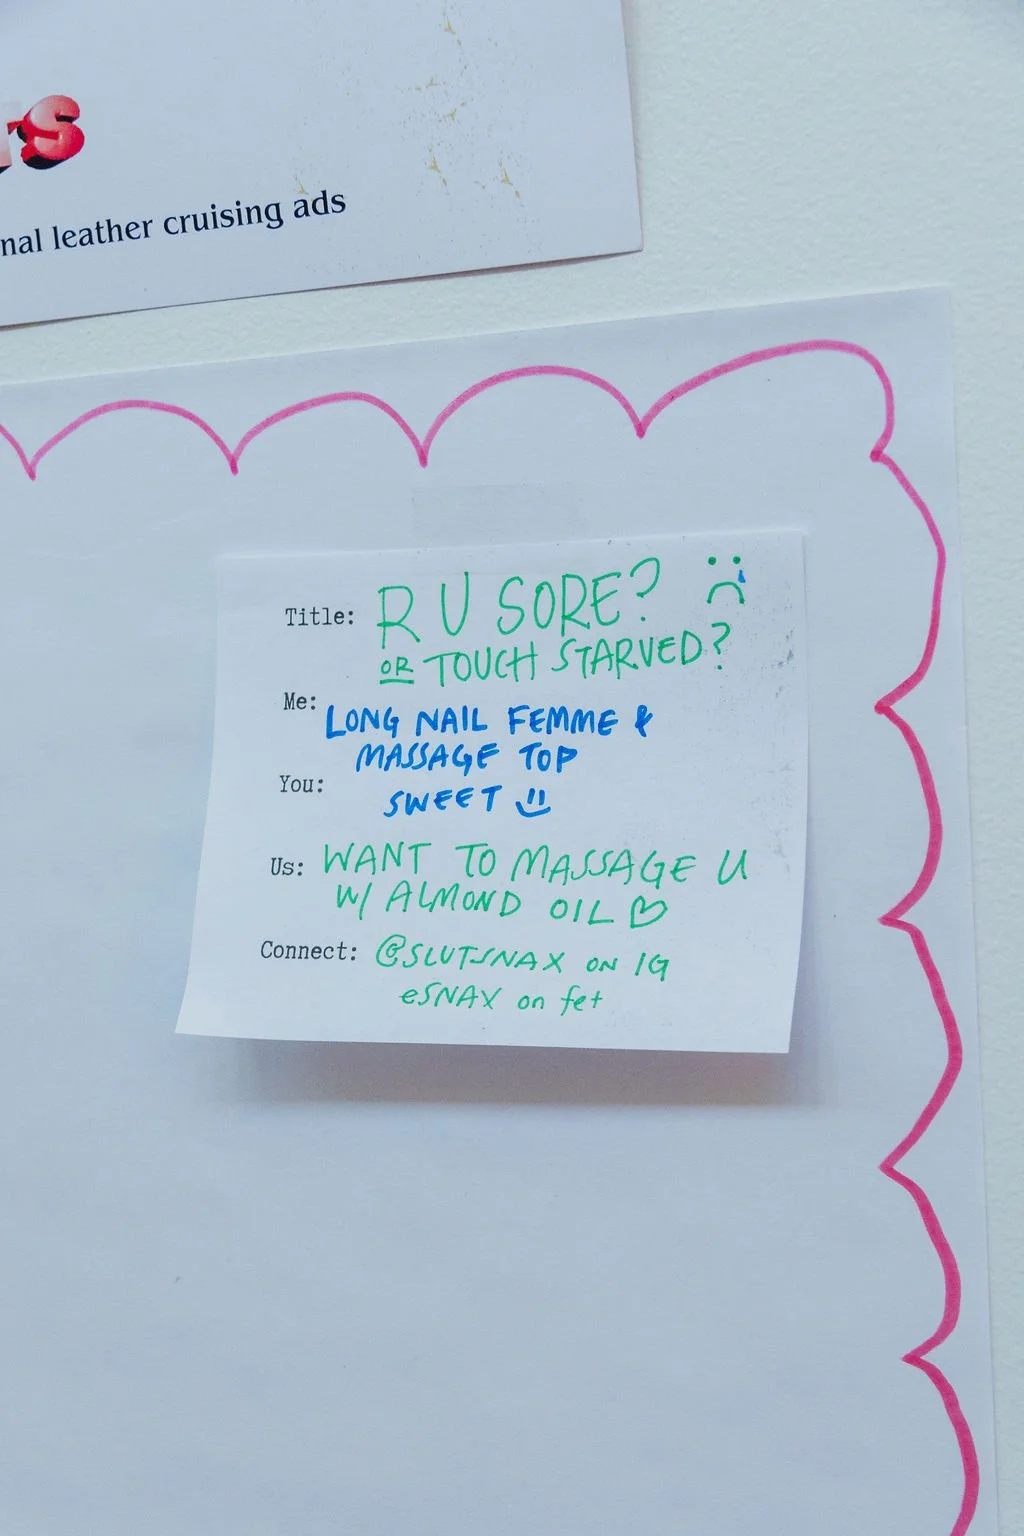 rs
nal leather cruising ads
Title: R U SORE?
OR TOUCH STARVED?
Me: LONG NAIL FEMME &
MASSAGE TOP
You: SWEET
Us: WANT TO MASSAGE U
W/ ALMOND OIL
Connect: @SLUTSNAX ON IG
eSNAX on fet